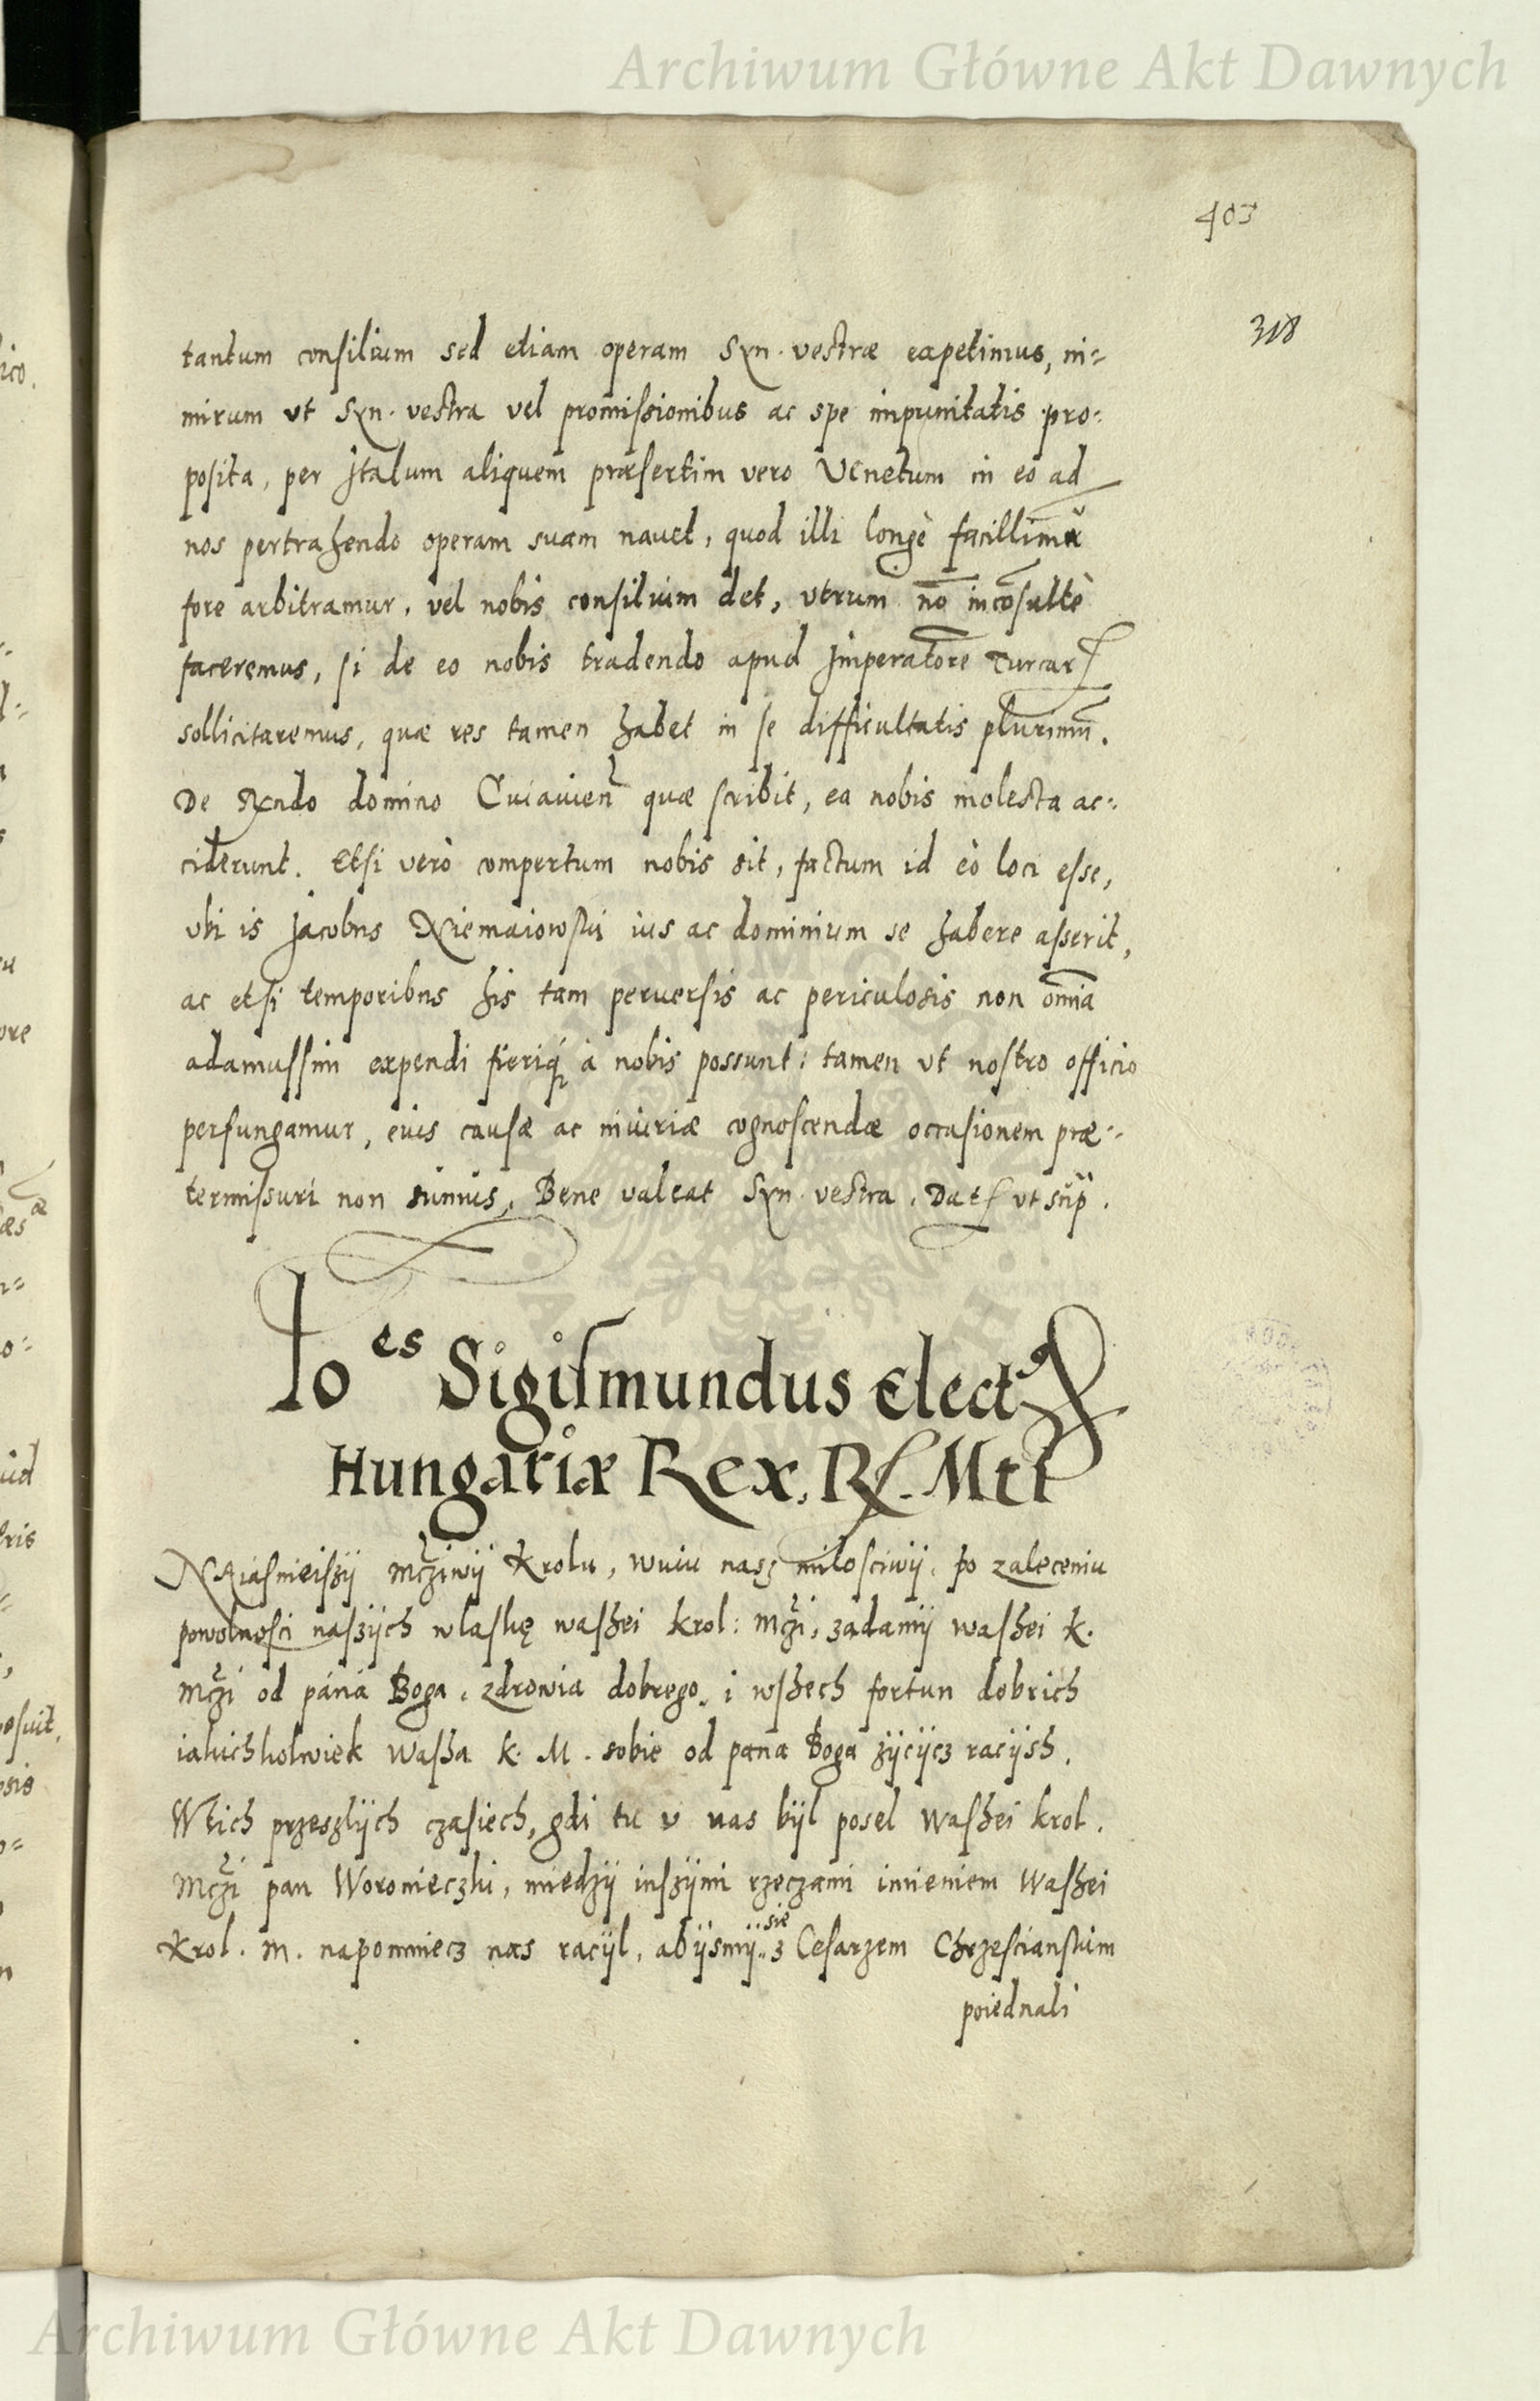 Archiwum Główne Akt Dawnych
403
318
tantum consilium sed etiam operam Syn. vestræ expetimus, ni=
mirum vt Syn. vestra vel promissionibus ac spe impunitatis pro=
posita, per Italum aliquem præsertim vero Venetum in eo ad
nos pertrahendo operam suam nauet, quod illi longè facillimũ
fore arbitramur, vel nobis consilium det, vtrum nō incōsultè
faceremus, si de eo nobis tradendo apud Imperatōre Turcar
sollicitaremus, quæ res tamen habet in se difficultatis plurimū.
De Rndo domino Cuiauien quæ scribit, ea nobis molesta ac=
ciderunt. Etsi verò compertum nobis sit, factum id eò loci esse,
vbi is Jacobus Niemaiowski ius ac dominium se habere asserit,
ac etsi temporibus his tam peruersis ac periculosis non omīa
adamussim expendi fieriq́ à nobis possunt: tamen vt nostro officio
perfungamur, eius causæ ac iniuriæ cognoscendæ occasionem præ=
termissuri non sumus, Bene valeat Syn. vestra. Dat vt sup̃.
Io es Sigismundus Elect9
Hungariæ Rex. R. Mti
NAiasnieiszÿ Mčziwÿ Krolu, wuiu nasz miłosciwÿ, po zaleceniu
powolnosci naszÿch wlaskę waszei krol: Mčzi, zadamÿ waszei k.
Mčzi od páná Boga, zdrowia dobrego, i wszech fortun dobrich
iakichkolwiek wasza k. M. sobie od pana Boga zÿcÿcz racÿsh.
Wtich przeszlÿch czasiech, gdi tu v nas bÿl posel waszei krol.
Mčzi pan Woronieczki, miedzÿ inszÿmi rzeczami imieniem waszei
Krol. M. napomniecz nas racÿl, abÿsmÿ się z Cesarzem Chrzescianskim
poiednali
Archiwum Główne Akt Dawnych